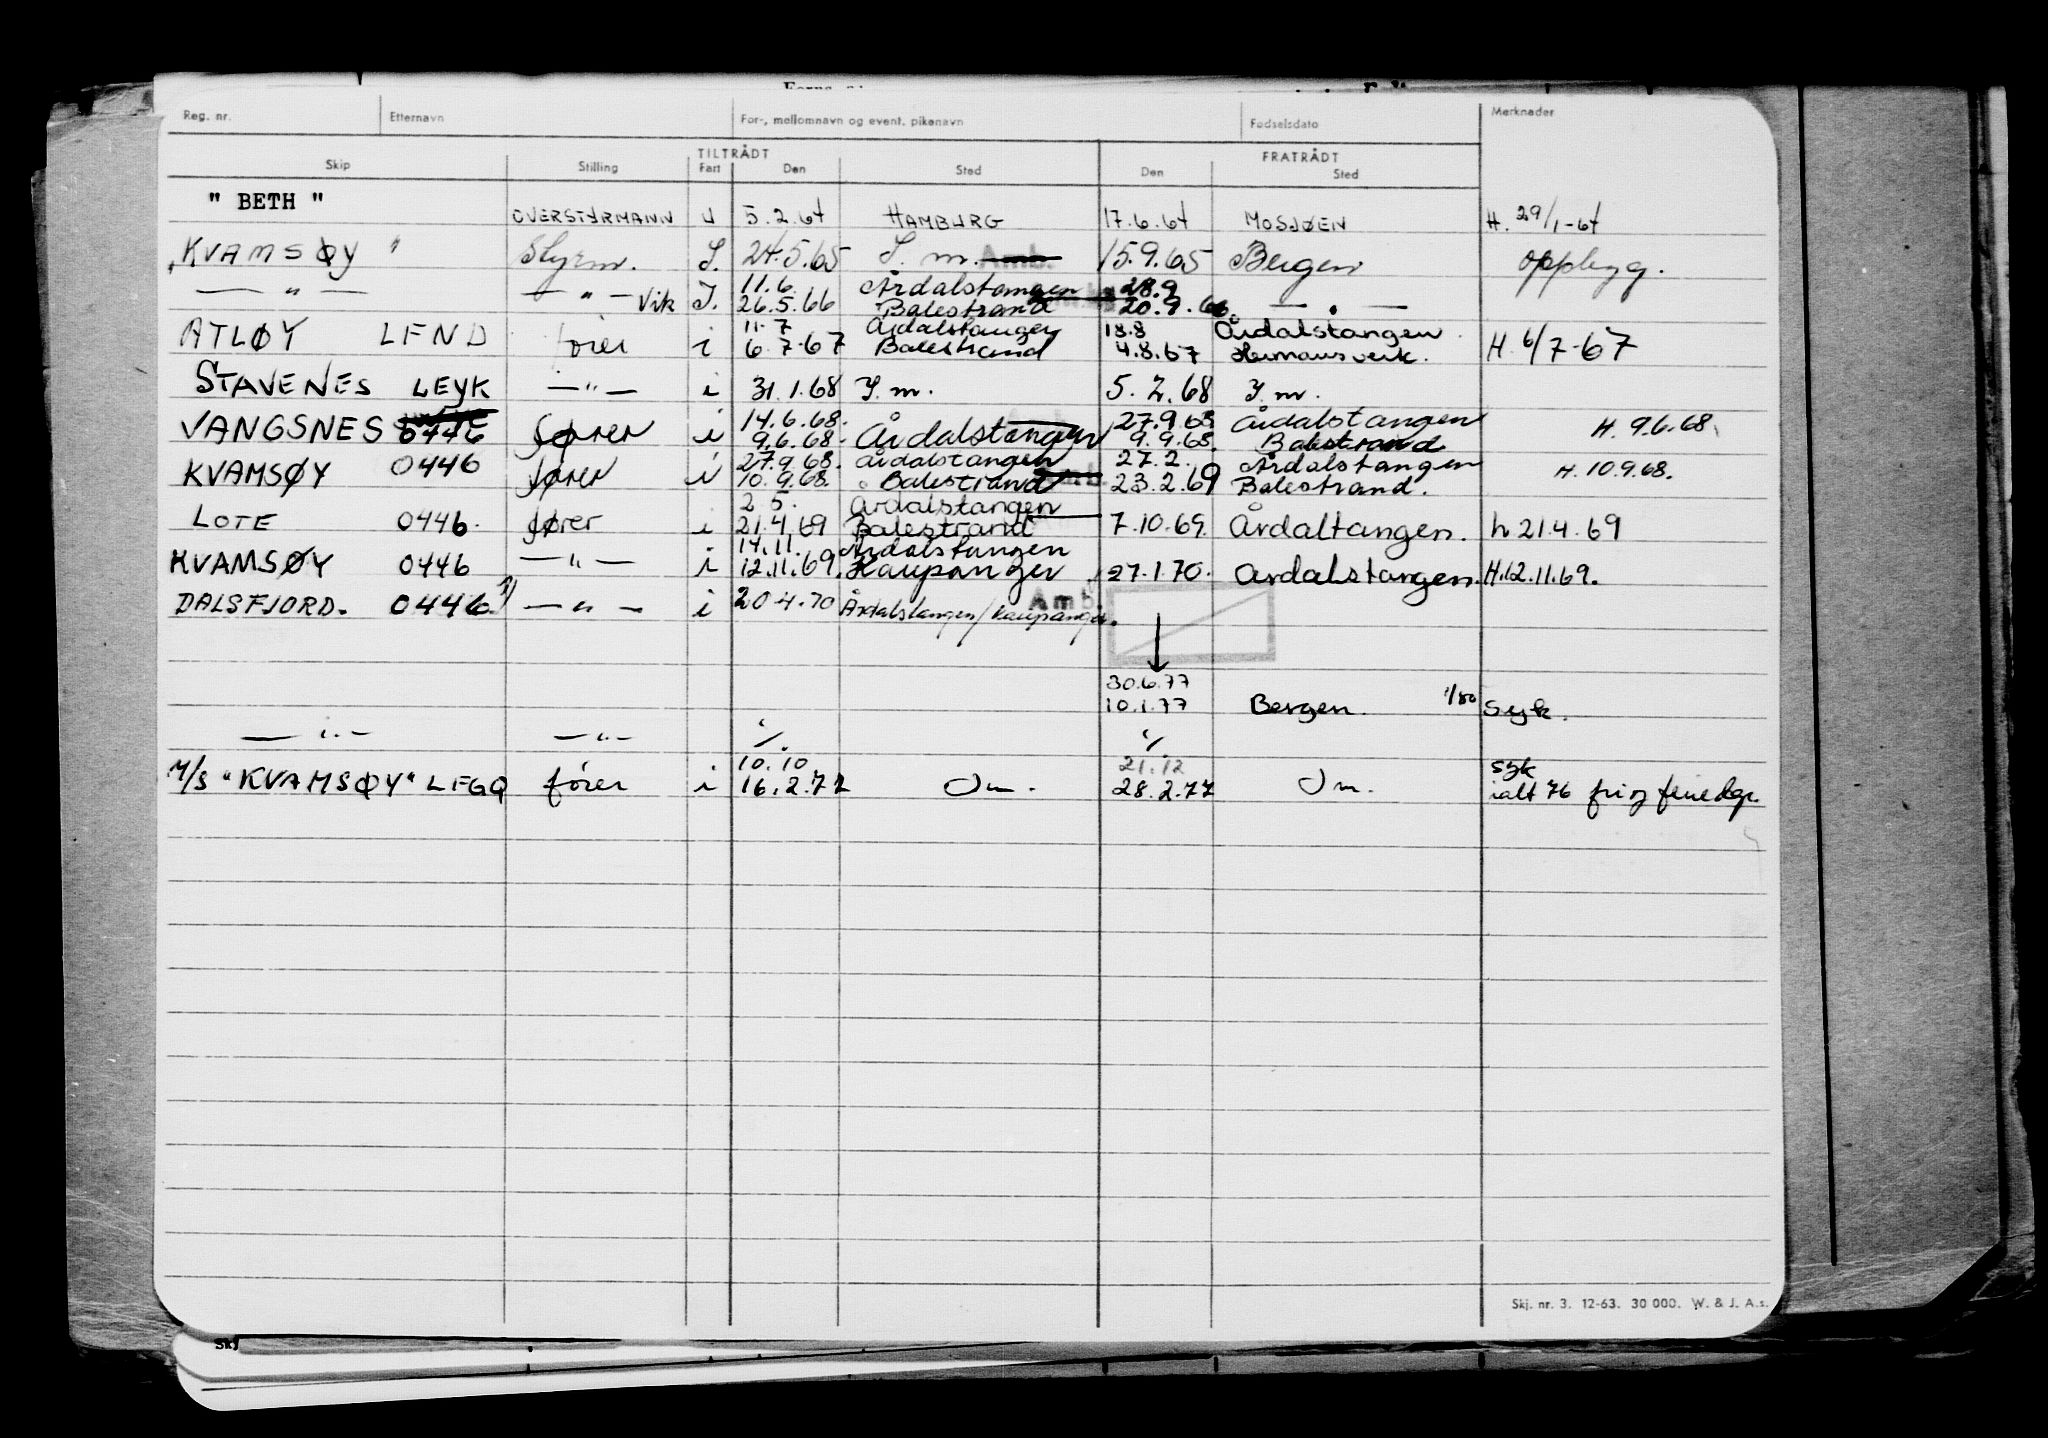 Reg. nr. Etternavn For-, mellomnavn og event. pikenavn Fødselsdato Merknader
TILTRÅDT FRATRÅDT
Skip Stilling Fart Den Sted Den Sted
" BETH "
OVERSTYRMANN U 5.2.64 HAMBURG 17.6.64 MOSJØEN H. 29/1-64
"KVAMSØY" Styrm. I. 24.5.65 I. m. Amb. 15.9.65 Bergen oppbygg.
11.6. Årdalstangen 28.9
— " — — " — Vik I. 26.5.66 Balestrand 20.9.66 — " —
11.7 Årdalstangen 18.8 Årdalstangen
ATLØY LEND fører i 6.7.67 Balestrand 4.8.67 Hermansverk. H. 6/7-67
STAVENES LEYK — " — i 31.1.68 I m. 5.2.68 I m.
14.6.68. 27.9.68 Årdalstangen
VANGSNES 0446 Fører i 9.6.68. Årdalstangen 9.9.68. Balestrand H. 9.6.68.
27.9.68. Årdalstangen 27.2. Årdalstangen
KVAMSØY 0446 fører i 10.9.68. Balestrand 23.2.69 Balestrand. H. 10.9.68.
2.5. Årdalstangen
LOTE 0446. fører i 21.4.69 Balestrand 7.10.69. Årdaltangen. h 21.4.69
14.11. Årdalstangen
KVAMSØY 0446 — " — i 12.11.69. Kaupanger 27.1.70. Årdalstangen. H.12.11.69.
DALSFJORD. 0446. — " — i 20.4.70 Årdalstangen/Kaupanger. Amb.
30.6.77
10.1.77 Bergen. 1/80 Syk.
— " — — " — %. %.
10.10 21.12 syk
M/S "KVAMSØY" LEGQ fører i 16.2.77 I m. 28.2.77 I m. ialt 76 fri og feriedgr.
Skj. nr. 3. 12-63. 30 000. W. & J. A.s.
Skj